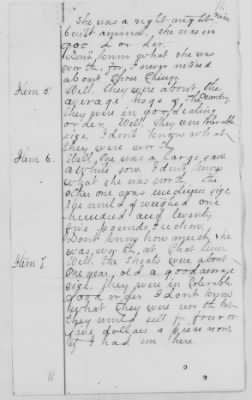 She was a right might nice
built animal, she was in
good order.
Don't know what she was
worth for I never noticed
about those things
Item 5. Well, they were about the
average hogs of the country
they were in good eating
order, Well, they were tolerable
size, I don't know what
they were worth
Item 6. Well, one was a large, sow
a white sow. I don't know
what she was worth. The
other one was medium size,
She would of weighed one
hundred and twenty
five pounds I reckon,
Don't know how much she
was worth at that time.
Item 7. Well the shoats were about
one year, old a good average
size. They were in tolerable
good order I don't know
what they were worth but
they would sell for four or
five dollars a piece now
if I had em here.
8